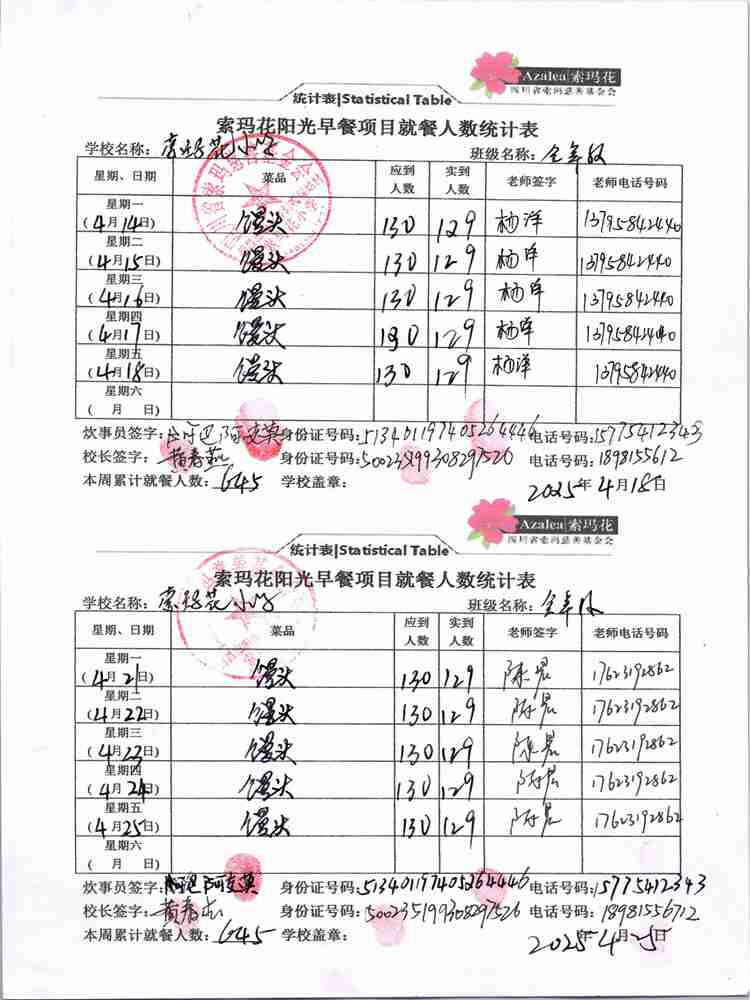 Azalea 索玛花
四川省索玛慈善基金会
统计表|Statistical Table
索玛花阳光早餐项目就餐人数统计表
学校名称：索玛花小学 班级名称：全年级
星期、日期 菜品 应到人数 实到人数 老师签字 老师电话号码
星期一
(4月14日) 馒头 130 129 杨洋 13795842440
星期二
(4月15日) 馒头 130 129 杨洋 13795842440
星期三
(4月16日) 馒头 130 129 杨洋 13795842440
星期四
(4月17日) 馒头 130 129 杨洋 13795842440
星期五
(4月18日) 馒头 130 129 杨洋 13795842440
星期六
( 月 日)
炊事员签字： 身份证号码：513401197405264446 电话号码：15775412343
校长签字：黄春燕 身份证号码： 电话号码：1898155612
本周累计就餐人数：645 学校盖章：
2025年4月18日
Azalea 索玛花
四川省索玛慈善基金会
统计表|Statistical Table
索玛花阳光早餐项目就餐人数统计表
学校名称：索玛花小学 班级名称：全年级
星期、日期 菜品 应到人数 实到人数 老师签字 老师电话号码
星期一
(4月21日) 馒头 130 129 陈宏 17623192862
星期二
(4月22日) 馒头 130 129 17623192862
星期三
(4月23日) 馒头 130 129 17623192862
星期四
(4月24日) 馒头 130 129 17623192862
星期五
(4月25日) 馒头 130 129 17623192862
星期六
( 月 日)
炊事员签字： 身份证号码：513401197405264446 电话号码：15775412343
校长签字：黄春燕 身份证号码：500235199308297526 电话号码：18981556712
本周累计就餐人数：645 学校盖章：
2025年4月25日